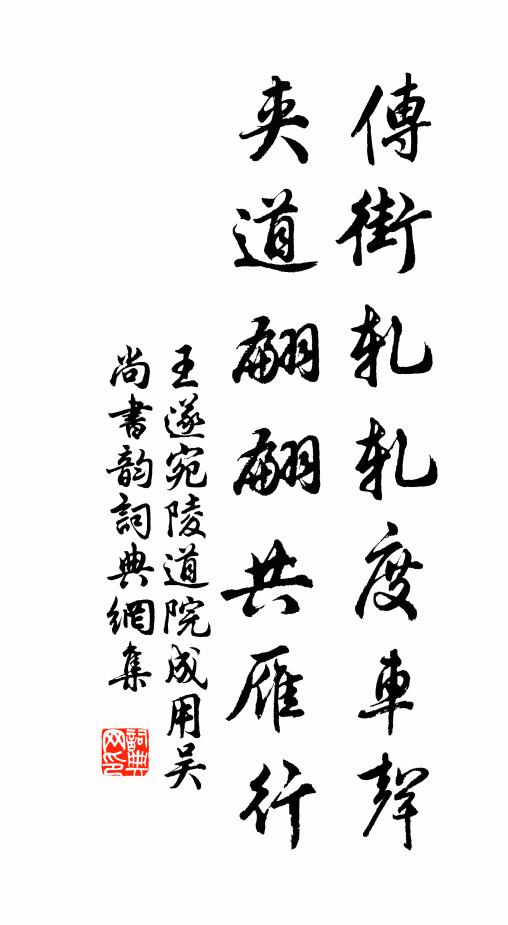 傳街軋軋度車聲
夾道翩翩共雁行
王遂宛陵道院成用吴
尚書韵詞典網集
詞典网印